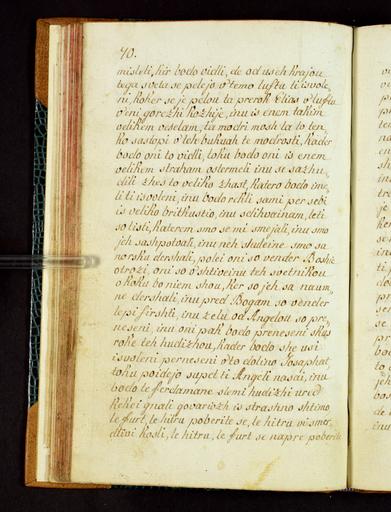 70.
misleli, kir bodo vidli, de od useh krajou
tega sveta se pelejo v'temo luftu ti isvole,
ni, koker se je pelou ta prerok Elias v'luftu
v'eni gorezhi kozhije, inu is enem takim
velikem veselam, ta modri mosh ta to ten,
ko sastopi v'teh bukuah te modrosti, kader
bodo oni to vidli, toku bodo oni is enem
velikem straham ostermeli inu se sazhu,
dili zhes to veliko zhast, katero bodo ime,
li ti isvoleni, inu bodo rekli sami per sebi
is veliko britkustio, inu sdihvainam, leti
so tisti, katerem smo se mi smejali, inu smo
jeh sashpotvali, inu neh shuleine smo sa
norsku dershali, polei oni so vender Boshji
otrozi, oni so v'shtiveinu teh svetnikou
o koku bo niem shou, ker so jeh sa naum,
ne dershali, inu pred Bogam so vender
lepi firshti, inu zelu od Angelou so pre,
neseni, inu oni pak bodo preneseni skus
roke teh hudizhou, kader bodo she usi
isvoleni perneseni v'to dolino Josaphat,
toku poidejo supet ti Angeli nasai, inu
bodo te ferdamane slemi hudizhi ured
kekei gnali govorizh is strashno shtimo,
le furt, le hitru poberite se, le hitru vi smer,
dlivi kosli, le hitru, le furt se napre poberite